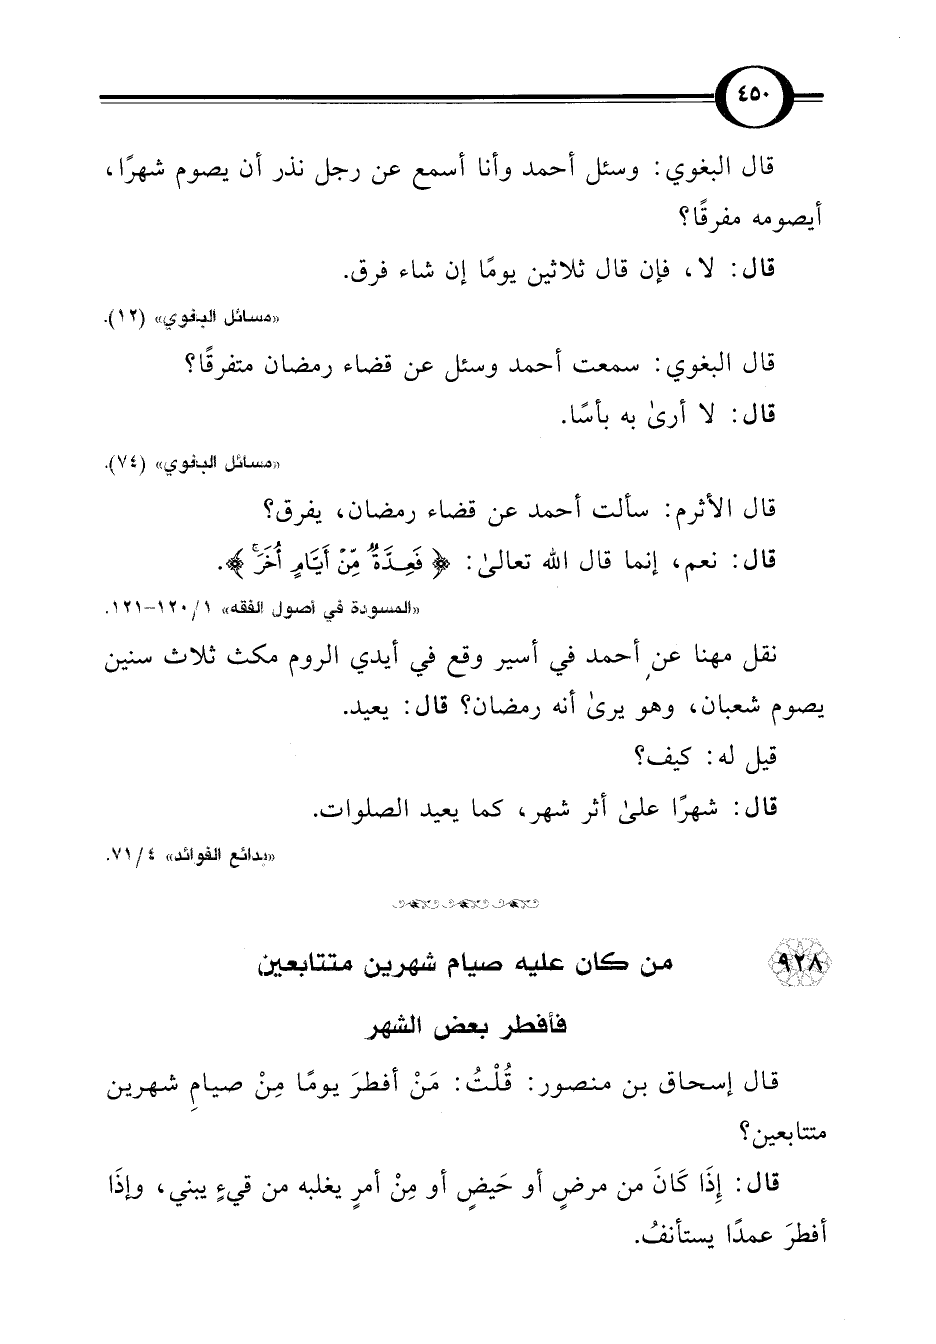 ٤٥٠
قال البغوي: وسئل أحمد وأنا أسمع عن رجل نذر أن يصوم شهرًا،
أيصومه مفرقًا؟
قال: لا، فإن قال ثلاثين يومًا إن شاء فرق.
«مسائل البغوي» (١٢).
قال البغوي: سمعت أحمد وسئل عن قضاء رمضان متفرقًا؟
قال: لا أرىٰ به بأسًا.
«مسائل البغوي» (٧٤).
قال الأثرم: سألت أحمد عن قضاء رمضان، يفرق؟
قال: نعم، إنما قال الله تعالىٰ: ﴿فَعِدَّةٌ مِّنْ أَيَّامٍ أُخَرَۚ﴾.
«المسودة في أصول الفقه» ١/ ١٢٠-١٢١.
نقل مهنا عن أحمد في أسير وقع في أيدي الروم مكث ثلاث سنين
يصوم شعبان، وهو يرىٰ أنه رمضان؟ قال: يعيد.
قيل له: كيف؟
قال: شهرًا علىٰ أثر شهر، كما يعيد الصلوات.
«بدائع الفوائد» ٤/ ٧١.
٩٢٨ من كان عليه صيام شهرين متتابعين
فأفطر بعض الشهر
قال إسحاق بن منصور: قُلْتُ: مَنْ أفطرَ يومًا مِنْ صيامِ شهرين
متتابعين؟
قال: إِذَا كَانَ من مرضٍ أو حَيضٍ أو مِنْ أمرٍ يغلبه من قيءٍ يبني، وإذَا
أفطرَ عمدًا يستأنفُ.